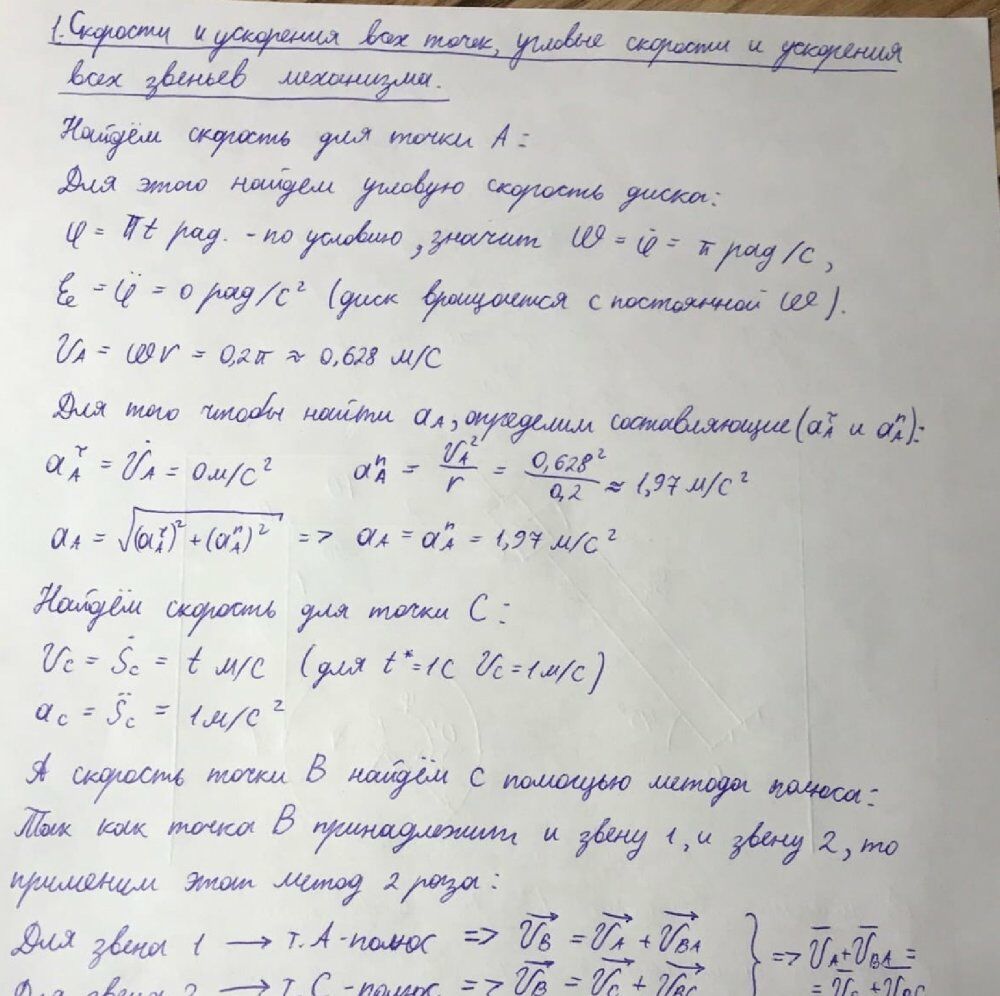 1. Скорости и ускорения всех точек, угловые скорости и ускорения
всех звеньев механизма.
Найдём скорость для точки А:
Для этого найдем угловую скорость диска:
φ = πt рад. - по условию, значит ω = φ̇ = π рад/с,
εe = φ̈ = 0 рад/с² (диск вращается с постоянной ω).
VA = ωr = 0,2π ≈ 0,628 м/с
Для того чтобы найти aA, определим составляющие (aAᵗ и aAⁿ):
aAᵗ = V̇A = 0 м/с² aAⁿ = VA²/r = 0,628²/0,2 ≈ 1,97 м/с²
aA = √((aAᵗ)² + (aAⁿ)²) => aA = aAⁿ = 1,97 м/с²
Найдём скорость для точки С:
VC = ṠC = t м/с (для t* = 1с VC = 1 м/с)
aC = S̈C = 1 м/с²
А скорость точки В найдём с помощью метода полюса:
Так как точка В принадлежит и звену 1, и звену 2, то
применим этот метод 2 раза:
Для звена 1 → т. А - полюс => V⃗B = V⃗A + V⃗BA } => V̄A + V̄BA =
Для звена 2 → т. С - полюс => V⃗B = V⃗C + V⃗BC = V̄C + V̄BC